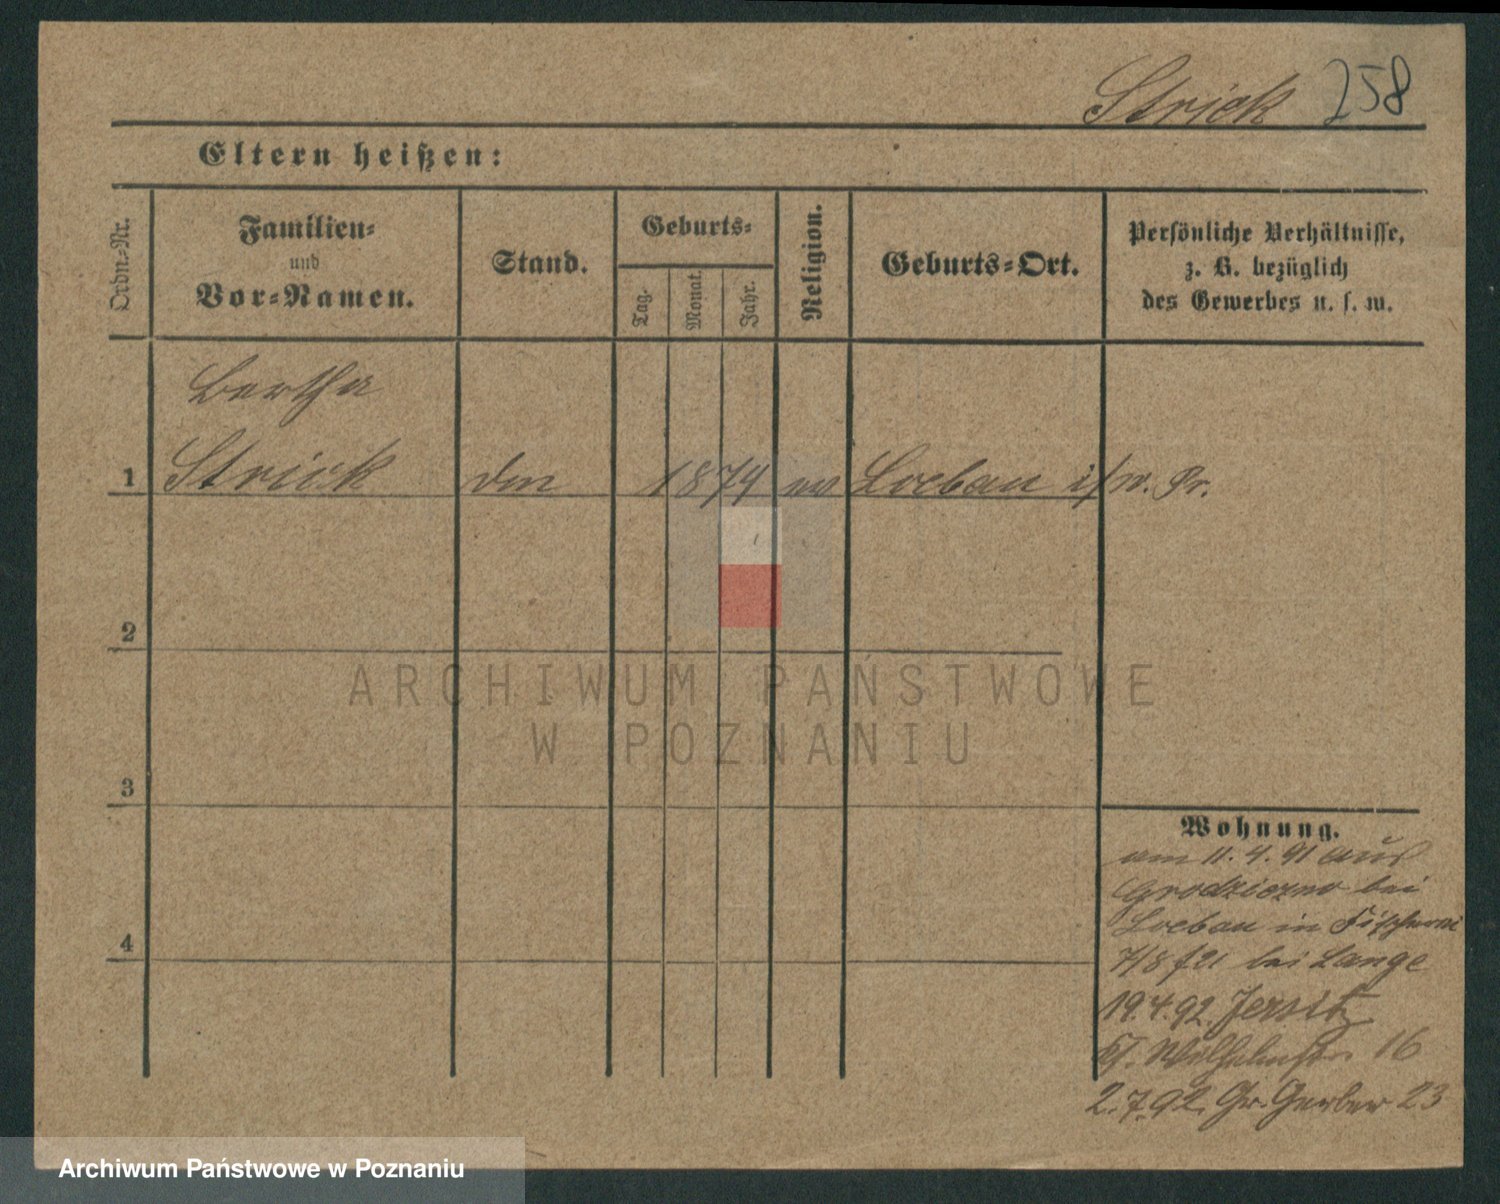 Strick 258
Eltern heißen:
Ordn.-Nr.
Familien-
und
Vor-Namen.
Stand.
Geburts-
Tag.
Monat.
Jahr.
Religion.
Geburts-Ort.
Persönliche Verhältnisse,
z. B. bezüglich
des Gewerbes u. s. w.
Bertha
1 Strick 1874 ev Loebau i/W. Pr.
2
ARCHIWUM PAŃSTWOWE
W POZNANIU
3
Wohnung.
am 11.4.91 aus
Grodziczno bei
Loebau in Fischerei
7/8 bei Lange
4
19.4.92 Jersitz
Kl. Wilhelmstr. 16
2.7.92. Gr. Gerber 23
Archiwum Państwowe w Poznaniu